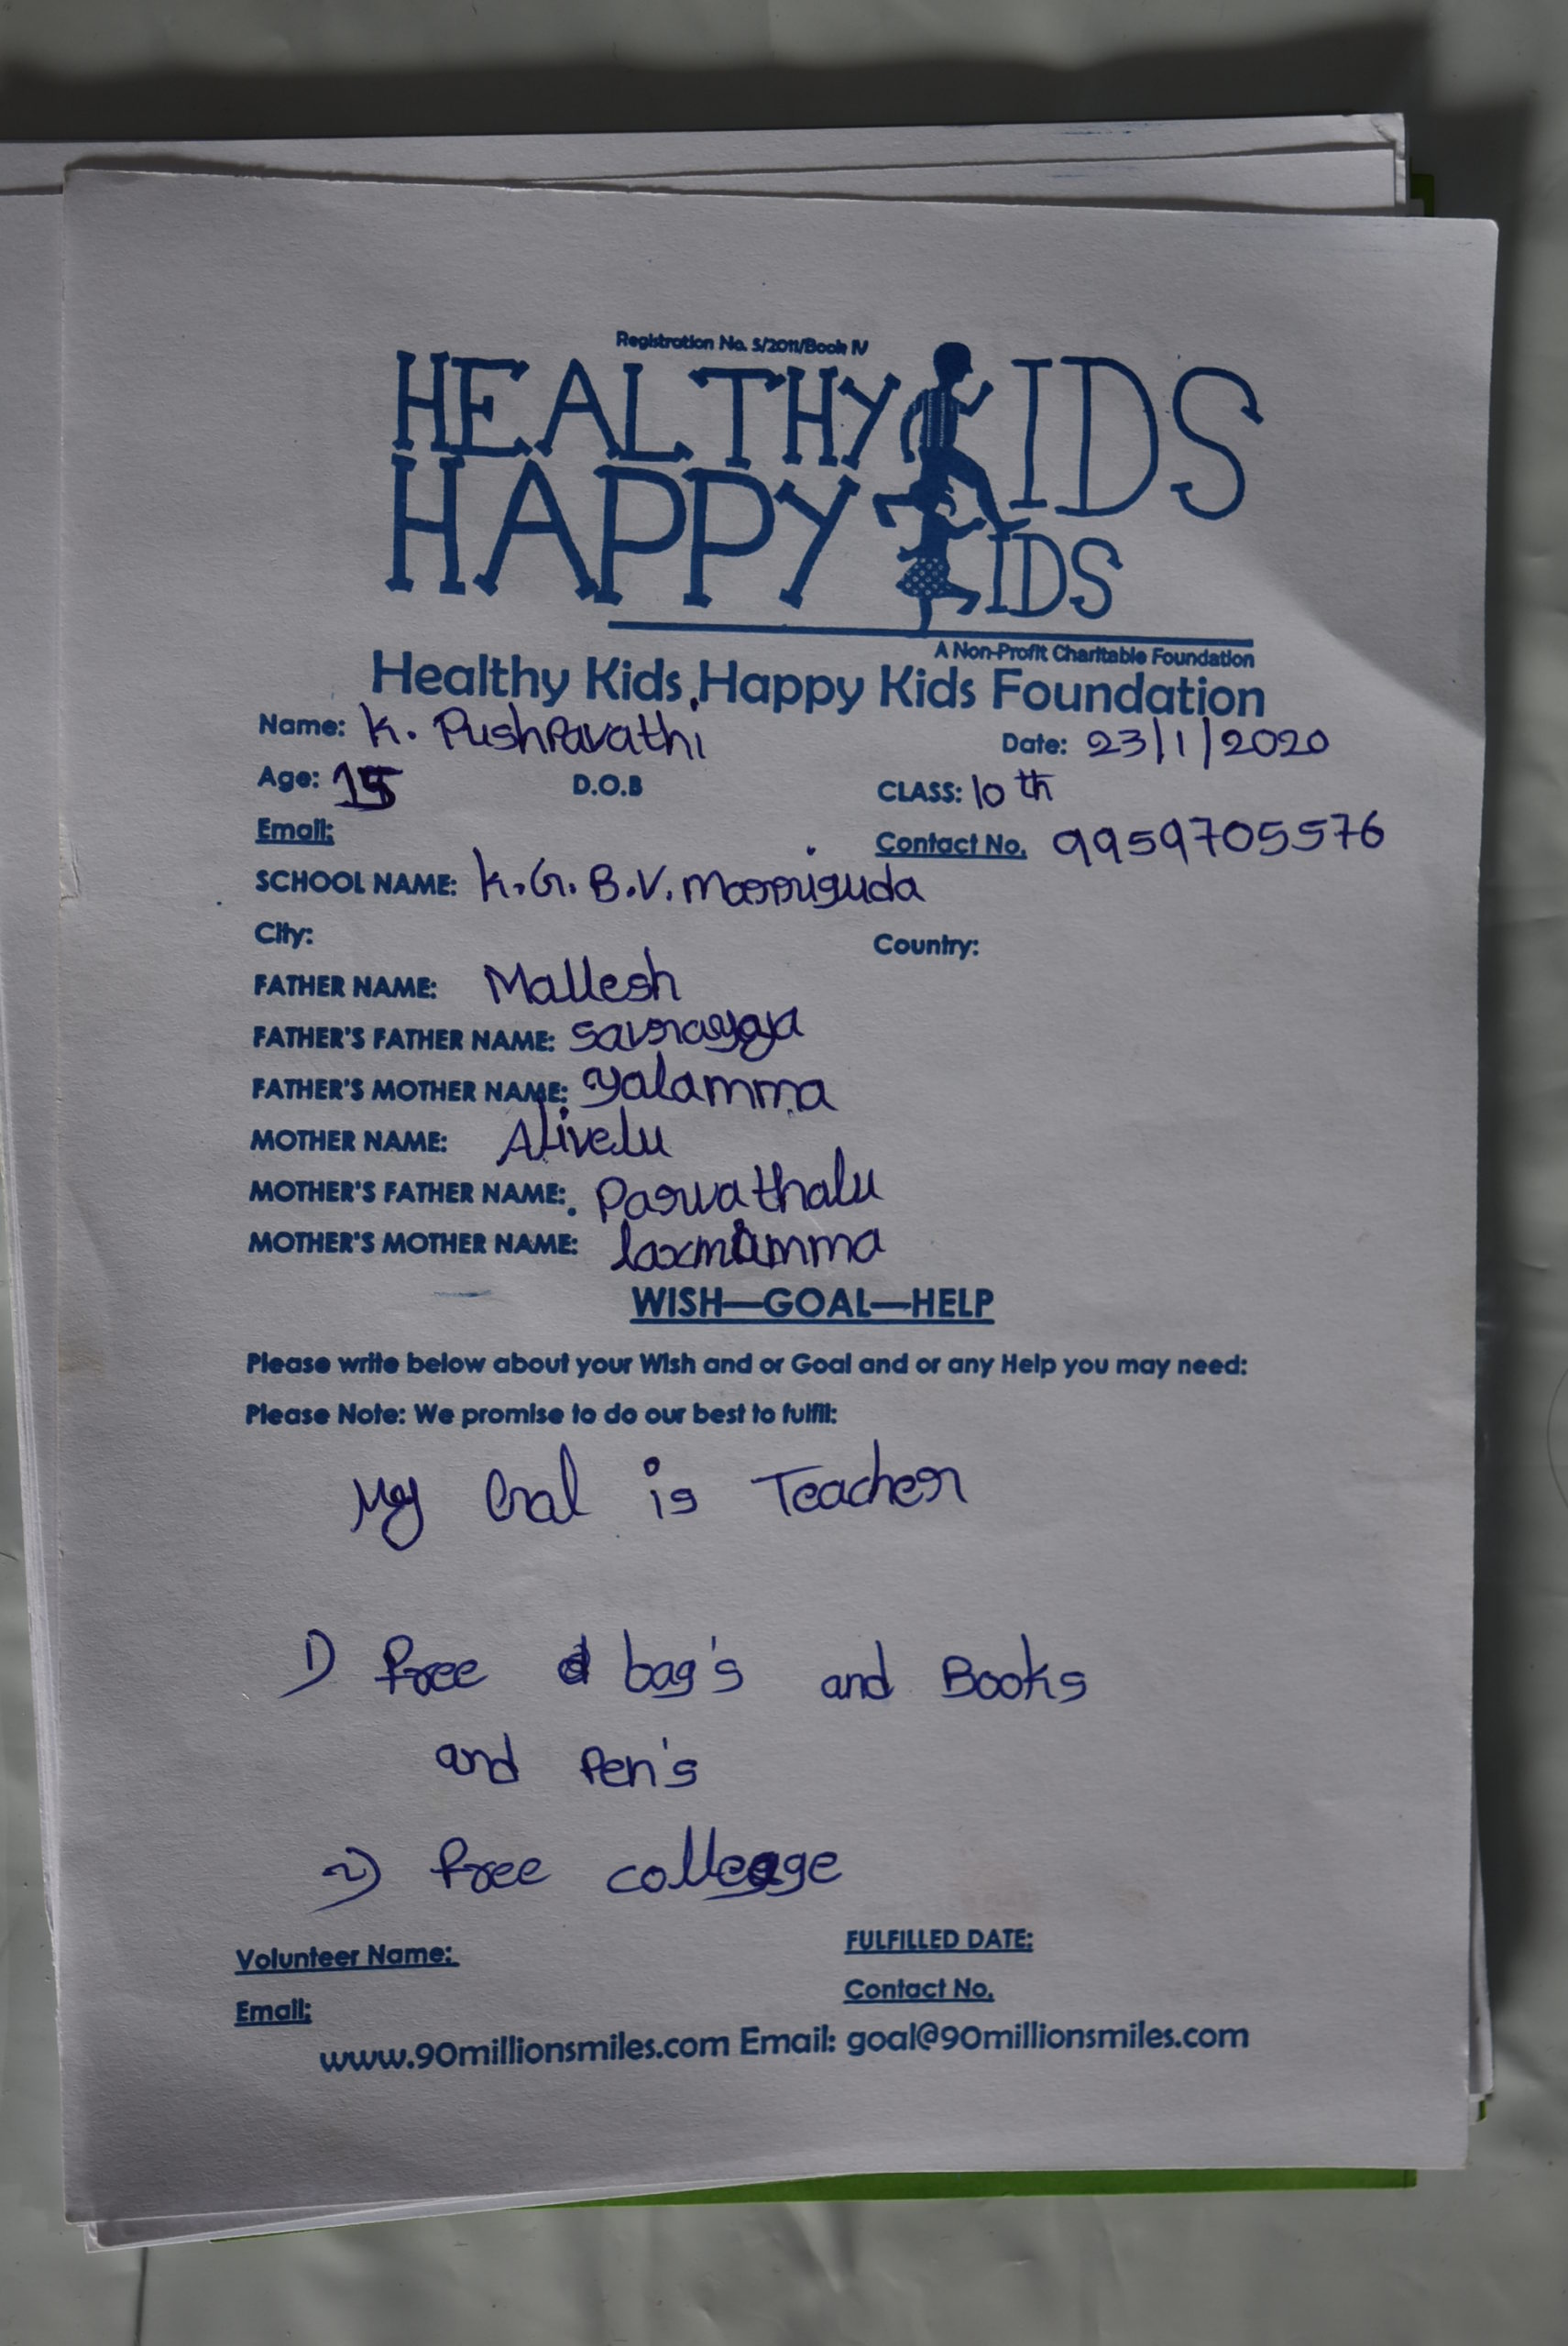 Registration No. 5/2011/Book IV
HEALTHY KIDS
HAPPY KIDS
A Non-Profit Charitable Foundation
Healthy Kids Happy Kids Foundation
Name: K. Pushpavathi Date: 23/1/2020
Age: 15 D.O.B CLASS: 10th
Email: Contact No. 9959705576
SCHOOL NAME: K.G.B.V. Marriguda
City: Country:
FATHER NAME: Mallesh
FATHER'S FATHER NAME: Savrayya
FATHER'S MOTHER NAME: Yalamma
MOTHER NAME: Alivelu
MOTHER'S FATHER NAME: Parvathalu
MOTHER'S MOTHER NAME: laxmamma
WISH—GOAL—HELP
Please write below about your Wish and or Goal and or any Help you may need:
Please Note: We promise to do our best to fulfil:
My Goal is Teacher
1) free bag's and Books
and Pen's
2) free colleage
Volunteer Name: FULFILLED DATE:
Email: Contact No.
www.90millionsmiles.com Email: goal@90millionsmiles.com